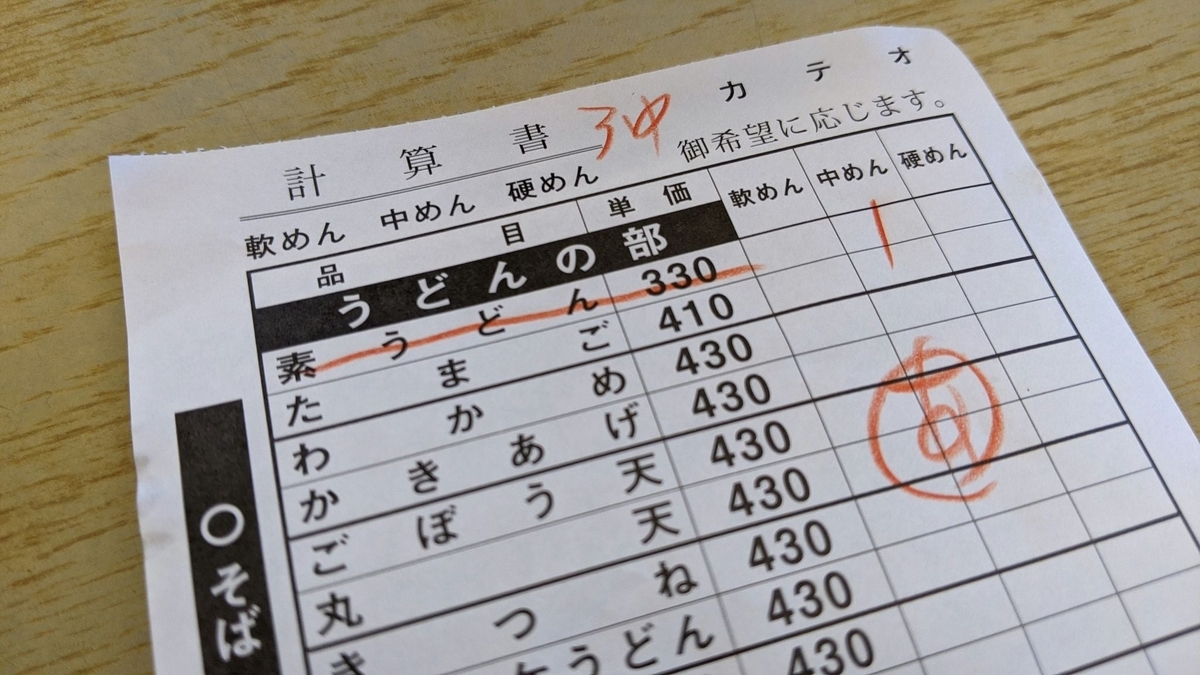 計算書 カテオ
軟めん 中めん 硬めん 御希望に応じます。
品目 単価 軟めん 中めん 硬めん
うどんの部
素うどん 330 1
たまご 410
わかめ 430
かきあげ 430
ごぼう天 430
丸天 430
きつね 430
うどん 430
430
あ
○そば